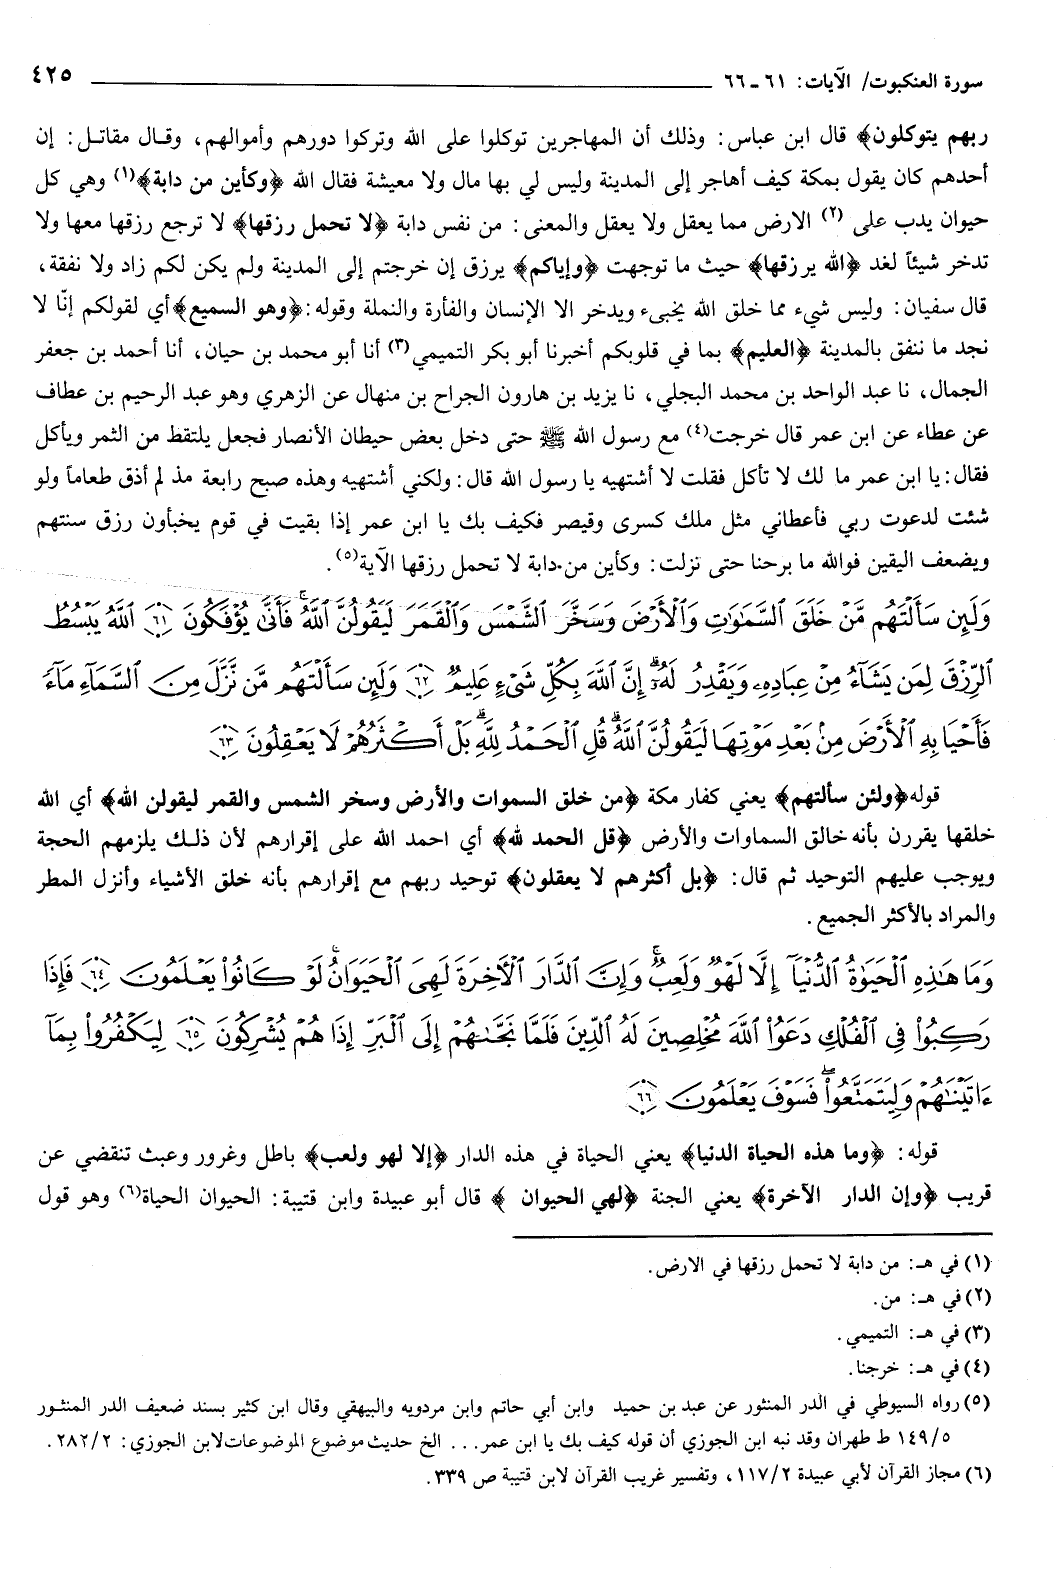 سورة العنكبوت/ الآيات: ٦١ ـ ٦٦ ٤٢٥
ربهم يتوكلون﴾ قال ابن عباس: وذلك أن المهاجرين توكلوا على الله وتركوا دورهم وأموالهم، وقال مقاتل: إن
أحدهم كان يقول بمكة كيف أهاجر إلى المدينة وليس لي بها مال ولا معيشة فقال الله ﴿وكأين من دابة﴾(١) وهي كل
حيوان يدب على (٢) الارض مما يعقل ولا يعقل والمعنى: من نفس دابة ﴿لا تحمل رزقها﴾ لا ترجع رزقها معها ولا
تدخر شيئاً لغد ﴿الله يرزقها﴾ حيث ما توجهت ﴿وإياكم﴾ يرزق إن خرجتم إلى المدينة ولم يكن لكم زاد ولا نفقة،
قال سفيان: وليس شيء مما خلق الله يخبىء ويدخر الا الإنسان والفأرة والنملة وقوله:﴿وهو السميع﴾أي لقولكم إنّا لا
نجد ما ننفق بالمدينة ﴿العليم﴾ بما في قلوبكم أخبرنا أبو بكر التميمي(٣) أنا أبو محمد بن حيان، أنا أحمد بن جعفر
الجمال، نا عبد الواحد بن محمد البجلي، نا يزيد بن هارون الجراح بن منهال عن الزهري وهو عبد الرحيم بن عطاف
عن عطاء عن ابن عمر قال خرجت(٤) مع رسول الله ﷺ حتى دخل بعض حيطان الأنصار فجعل يلتقط من الثمر ويأكل
فقال: يا ابن عمر ما لك لا تأكل فقلت لا أشتهيه يا رسول الله قال: ولكني أشتهيه وهذه صبح رابعة مذ لم أذق طعاماً ولو
شئت لدعوت ربي فأعطاني مثل ملك كسرى وقيصر فكيف بك يا ابن عمر إذا بقيت في قوم يخبأون رزق سنتهم
ويضعف اليقين فوالله ما برحنا حتى نزلت: وكأين من دابة لا تحمل رزقها الآية(٥).
وَلَئِن سَأَلْتَهُم مَّنْ خَلَقَ ٱلسَّمَٰوَٰتِ وَٱلْأَرْضَ وَسَخَّرَ ٱلشَّمْسَ وَٱلْقَمَرَ لَيَقُولُنَّ ٱللَّهُ ۖ فَأَنَّىٰ يُؤْفَكُونَ ٦١ ٱللَّهُ يَبْسُطُ
ٱلرِّزْقَ لِمَن يَشَآءُ مِنْ عِبَادِهِۦ وَيَقْدِرُ لَهُۥٓ ۚ إِنَّ ٱللَّهَ بِكُلِّ شَىْءٍ عَلِيمٌ ٦٢ وَلَئِن سَأَلْتَهُم مَّن نَّزَّلَ مِنَ ٱلسَّمَآءِ مَآءً
فَأَحْيَا بِهِ ٱلْأَرْضَ مِنۢ بَعْدِ مَوْتِهَا لَيَقُولُنَّ ٱللَّهُ ۚ قُلِ ٱلْحَمْدُ لِلَّهِ ۚ بَلْ أَكْثَرُهُمْ لَا يَعْقِلُونَ ٦٣
قوله﴿ولئن سألتهم﴾ يعني كفار مكة ﴿من خلق السموات والأرض وسخر الشمس والقمر ليقولن الله﴾ أي الله
خلقها يقررن بأنه خالق السماوات والأرض ﴿قل الحمد لله﴾ أي احمد الله على إقرارهم لأن ذلك يلزمهم الحجة
ويوجب عليهم التوحيد ثم قال: ﴿بل أكثرهم لا يعقلون﴾ توحيد ربهم مع إقرارهم بأنه خلق الأشياء وأنزل المطر
والمراد بالأكثر الجميع.
وَمَا هَٰذِهِ ٱلْحَيَوٰةُ ٱلدُّنْيَآ إِلَّا لَهْوٌ وَلَعِبٌ ۚ وَإِنَّ ٱلدَّارَ ٱلْءَاخِرَةَ لَهِىَ ٱلْحَيَوَانُ ۚ لَوْ كَانُوا۟ يَعْلَمُونَ ٦٤ فَإِذَا
رَكِبُوا۟ فِى ٱلْفُلْكِ دَعَوُا۟ ٱللَّهَ مُخْلِصِينَ لَهُ ٱلدِّينَ فَلَمَّا نَجَّىٰهُمْ إِلَى ٱلْبَرِّ إِذَا هُمْ يُشْرِكُونَ ٦٥ لِيَكْفُرُوا۟ بِمَآ
ءَاتَيْنَٰهُمْ وَلِيَتَمَتَّعُوا۟ ۖ فَسَوْفَ يَعْلَمُونَ ٦٦
قوله: ﴿وما هذه الحياة الدنيا﴾ يعني الحياة في هذه الدار ﴿إلا لهو ولعب﴾ باطل وغرور وعبث تنقضي عن
قريب ﴿وإن الدار الآخرة﴾ يعني الجنة ﴿لهي الحيوان ﴾ قال أبو عبيدة وابن قتيبة: الحيوان الحياة(٦) وهو قول
(١) في هـ: من دابة لا تحمل رزقها في الارض.
(٢) في هـ: من.
(٣) في هـ: التميمي.
(٤) في هـ: خرجنا.
(٥) رواه السيوطي في الدر المنثور عن عبد بن حميد وابن أبي حاتم وابن مردويه والبيهقي وقال ابن كثير بسند ضعيف الدر المنثور
١٤٩/٥ ط طهران وقد نبه ابن الجوزي أن قوله كيف بك يا ابن عمر... الخ حديث موضوع الموضوعات لابن الجوزي: ٢٨٢/٢.
(٦) مجاز القرآن لأبي عبيدة ١١٧/٢، وتفسير غريب القرآن لابن قتيبة ص ٣٣٩.